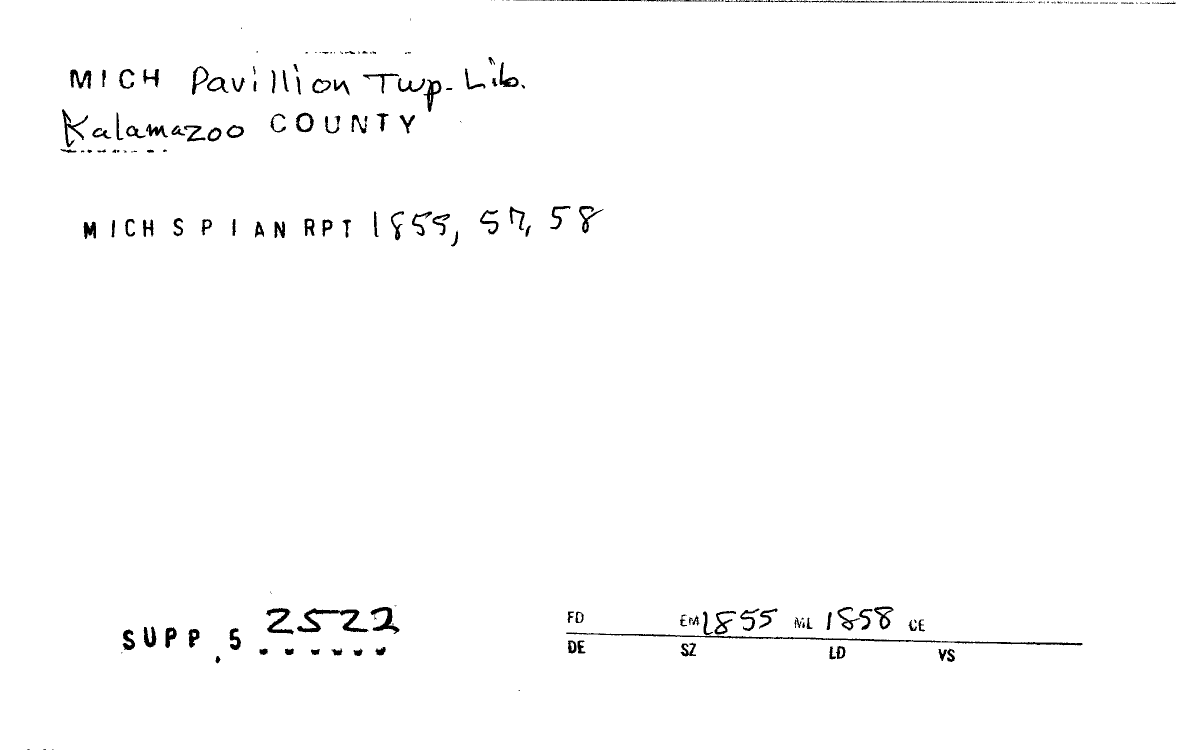 MICH Pavillion Twp. Lib.
Kalamazoo COUNTY
MICH S P I AN RPT 1855, 57, 58
SUPP. 5 2522
FD EM 1855 ML 1858 CE
DE SZ LD VS